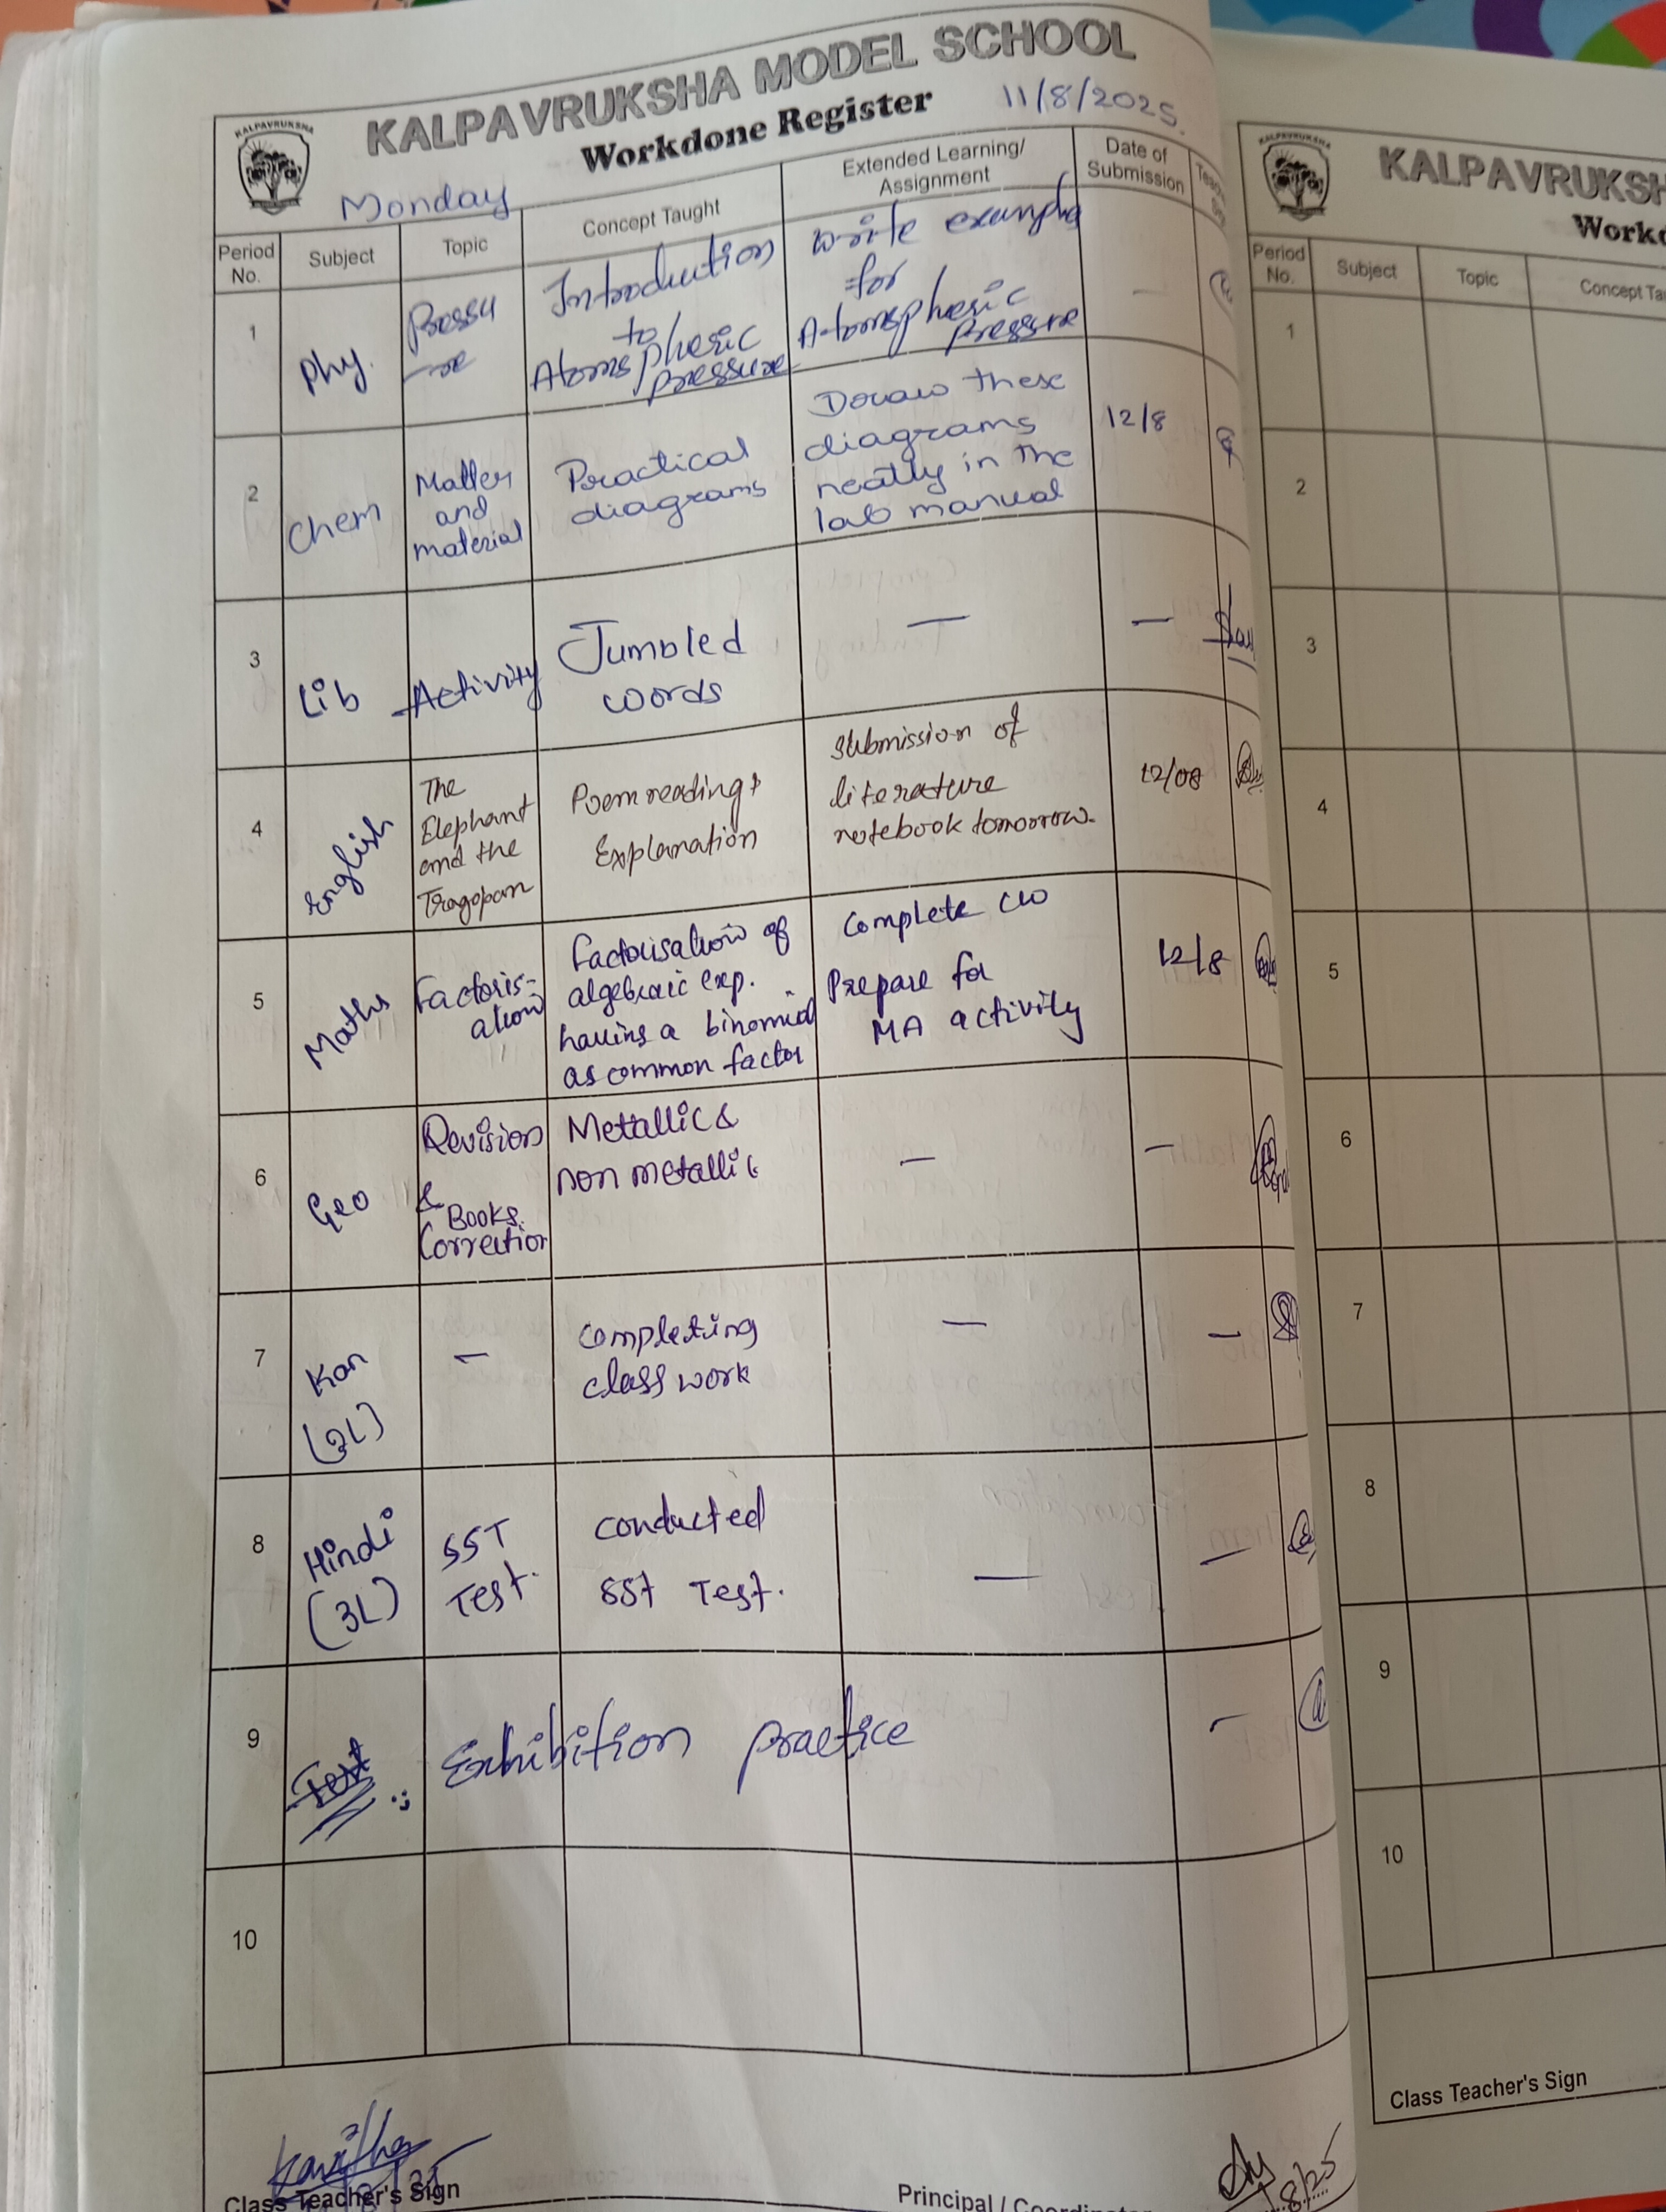 KALPAVRUKSHA
KALPAVRUKSHA MODEL SCHOOL
Workdone Register
11/8/2025.
Monday
Period No.
Subject
Topic
Concept Taught
Extended Learning/
Assignment
Date of
Submission
1
Phy.
Pressu
-re
Introduction
to
Atomsphesic
pressure
write example
for
Atomsphesic
Pressure
—
2
Chem
Matter
and
material
Practical
diagrams
Draw these
diagrams
neatly in the
lab manual
12/8
3
Lib
Activity
Jumbled
words
—
—
4
English
The
Elephant
and the
Tragopan
Poem reading &
Explanation
Submission of
literature
notebook tomorrow.
12/08
5
Maths
Factoris-
ation
Factorisation of
algebraic exp.
having a binomial
as common factor
Complete CW
Prepare for
MA activity
12/8
6
Geo
Revision
&
Books.
Correction
Metallic &
non metallic
—
—
7
Kan
(2L)
—
Completing
class work
—
—
8
Hindi
(3L)
SST
Test.
conducted
SSt Test.
—
—
9
Test
Exhibition practice
—
10
Kavitha
Class Teacher's Sign
Principal /
8/25
KALPAVRUKSHA
KALPAVRUKSH
Work
Period
No.
Subject
Topic
Concept Ta
1
2
3
4
5
6
7
8
9
10
Class Teacher's Sign